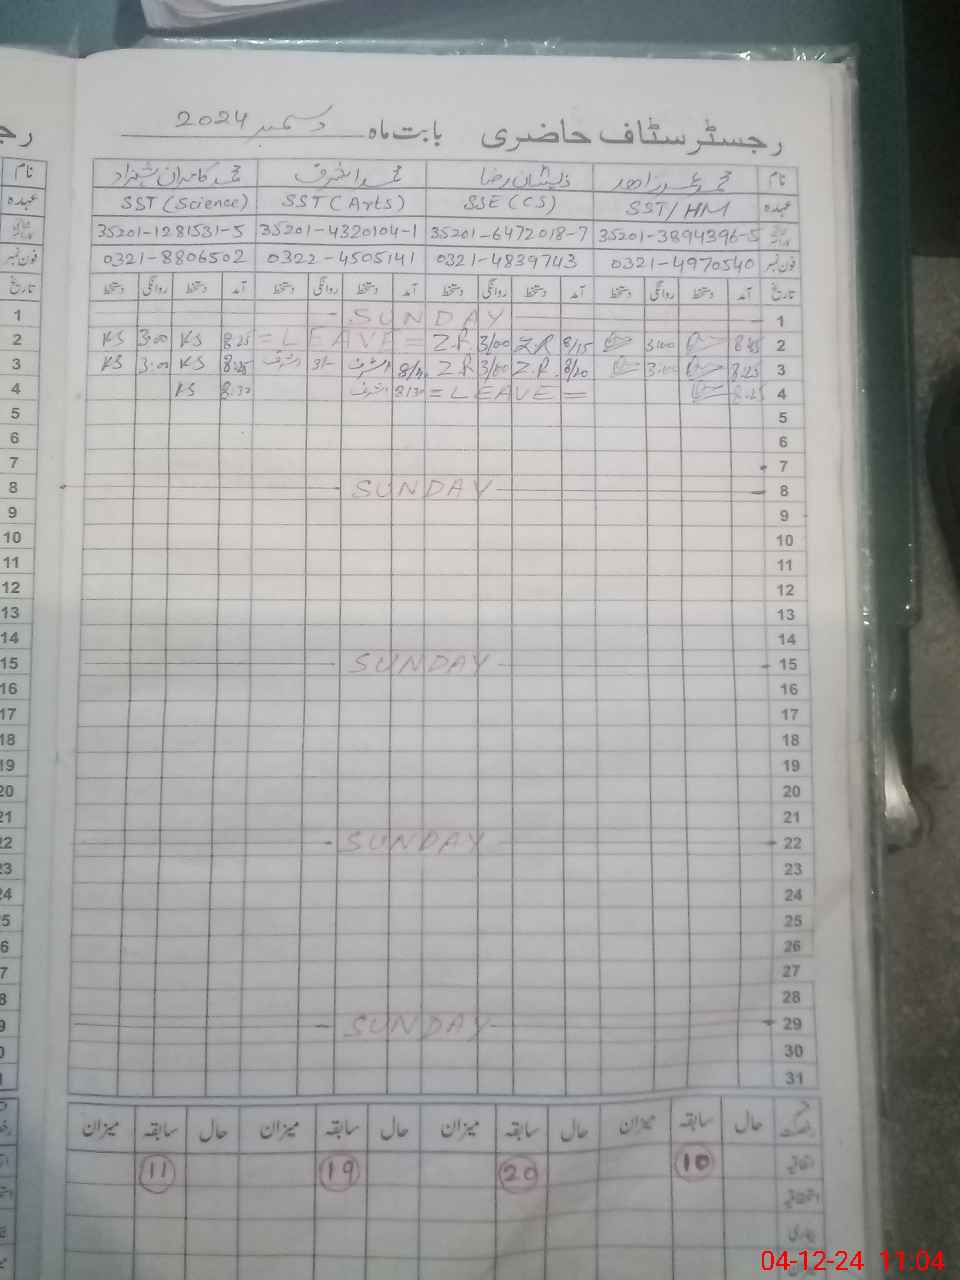 رجسٹر سٹاف حاضری بابت ماہ دسمبر 2024
نام محمد زاھد ذیشان رضا محمد اشرف محمد کامران شہزاد
عہدہ SST/HM SSE (CS) SST (Arts) SST (Science)
35201-3894396-5 35201-6472018-7 35201-4320104-1 35201-1281531-5
فون نمبر 0321-4970540 0321-4839743 0322-4505141 0321-8806502
تاریخ آمد دستخط روانگی دستخط آمد دستخط روانگی دستخط آمد دستخط روانگی دستخط آمد دستخط روانگی دستخط
1 SUNDAY 1
2 KS 3:00 KS 8:25 = LEAVE = Z.R. 3/00 Z.R 8/15 3:00 2
3 KS 3:00 KS اشرف اشرف Z R 3/00 Z.R. 3:00 8:25 3
4 KS 8:30 اشرف 8/30 = LEAVE = 8:25 4
5 5
6 6
7 7
8 SUNDAY 8
9 9
10 10
11 11
12 12
13 13
14 14
15 SUNDAY 15
16 16
17 17
18 18
19 19
20 20
21 21
22 SUNDAY 22
23 23
24 24
25 25
26 26
27 27
28 28
29 SUNDAY 29
30 30
31
حال سابقہ میزان حال سابقہ میزان حال سابقہ میزان حال سابقہ میزان
اتفاقیہ 10 20 19 11
04-12-24 11:04